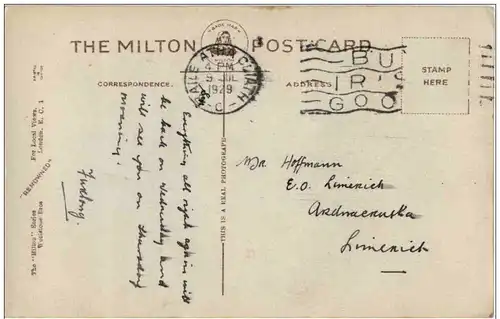 TRADE MARK
THE MILTON POST CARD
CORRESPONDENCE.
ADDRESS
STAMP
HERE
BAILE ATHA CLIATH
4 PM
9 JUL
1929
C
BU
IR'S
GOO
Everything all right again will
be back on Wednesday and
will see you on Thursday
morning.
Furlong.
Mr Hoffmann
E.O. Limerick
Ardnacrusha
Limerick
THIS IS A REAL PHOTOGRAPH
The "Milton" Series
Woolstone Bros
"RENOWNED"
For Local Views,
London, E.C. 1